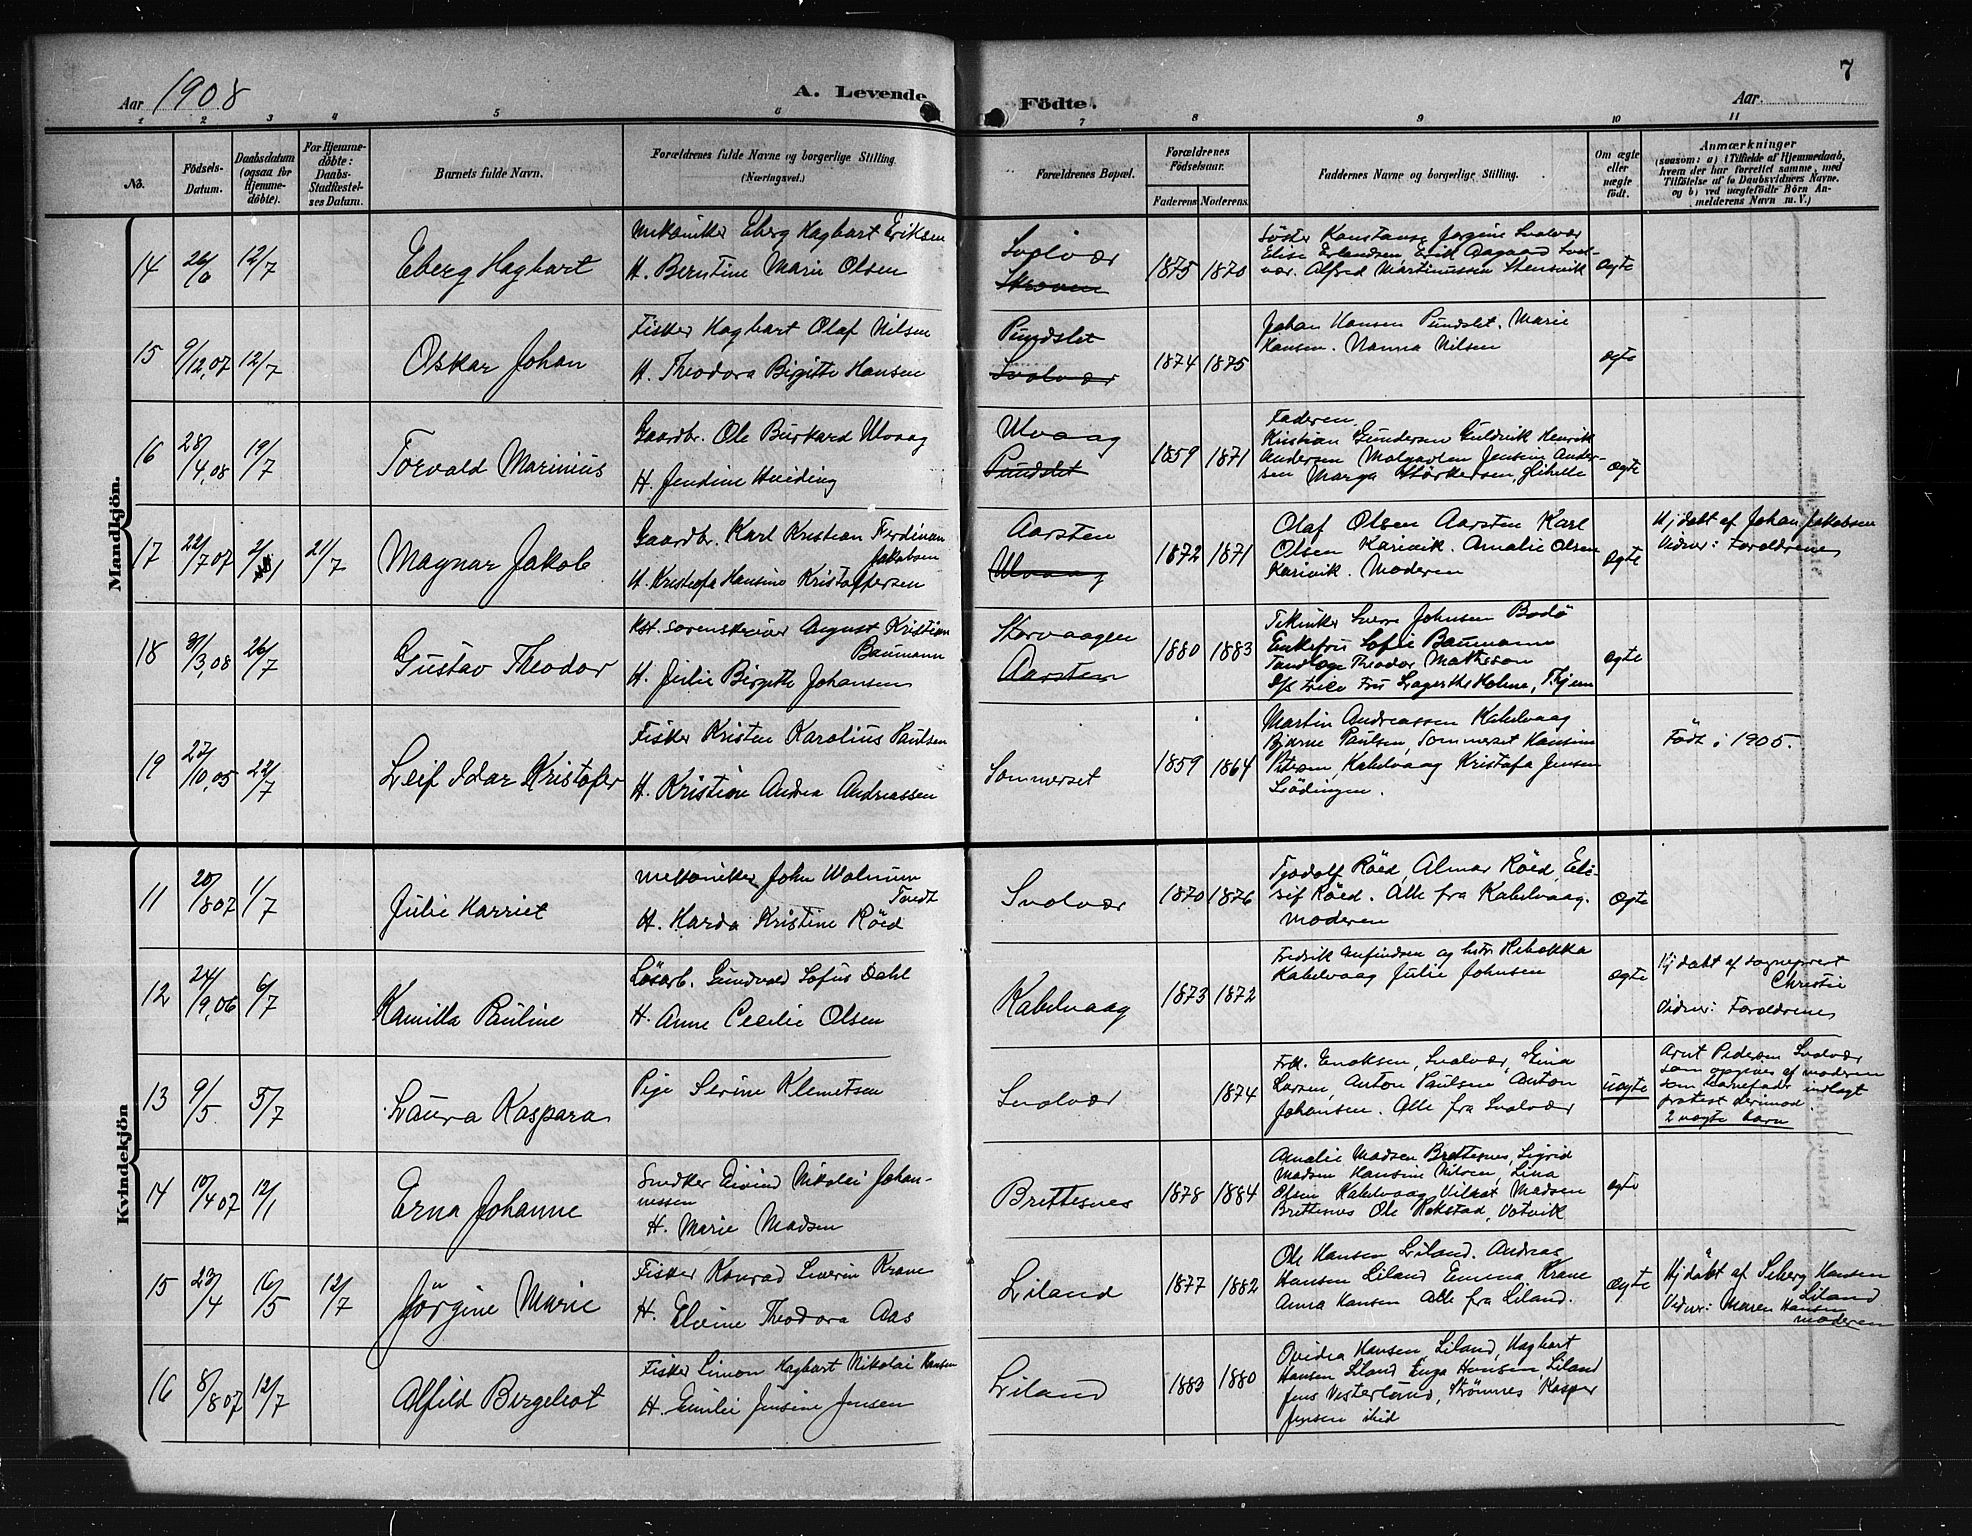 7
Aar 1908
A. Levende Födte.
Aar
1 2 3 4 5 6 7 8 9 10 11
No.
Födsels-
Datum.
Daabsdatum
(ogsaa for
Hjemme-
döbte).
For Hjemme-
döbte:
Daabs-
Stadfæstel-
ses Datum.
Barnets fulde Navn.
Forældrenes fulde Navne og borgerlige Stilling.
(Næringsvei.)
Forældrenes Bopæl.
Forældrenes
Födselsaar.
Faderens Moderens
Faddernes Navne og borgerlige Stilling.
Om ægte
eller
uægte
födt.
Anmærkninger
(saasom: a) i Tilfælde af Hjemmedaab,
hvem der har forrettet samme, med
Tilföielse af to Daabsvidners Navne.
og b) ved uægtefödte Börn An-
melderens Navn m. V.)
Mandkjön.
14 26/6 12/7
Eberg Hagbart
Mekaniker Eberg Hagbart Eriksen
H. Berntine Marie Olsen
Svolvær
Skroven
1875 1870
Söster Konstanse Jørgine Svolvær
Elise Erlandsen, Erik Aagaard Svol-
vær. Alfred Martinussen Stensvik
ægte
15 9/12,07 12/7
Oskar Johan
Fisker Hagbart Olaf Nilsen
H. Theodora Birgitte Hansen
Pundslet
Svolvær
1874 1875
Johan Hansen Pundslet. Marie
Hansen. Nanna Nilsen
ægte
16 28/4,08 19/7
Torvald Marinius
Gaardbr. Ole Burkard Ulvaag
H. Jendine Hveding
Ulvaag
Pundslet
1859 1871
Faderen.
Kristian Gundersen Guldvik Henrik
Andersen Molgavlen Jensine Ander-
sen Marga Størkersen,
ægte
17 22/7 07 21/7
Magnar Jakob
Gaardbr. Karl Kristian Ferdinan
Jakobsen
H. Kristofa Hansine Kristoffersen
Aarsten
Ulvaag
1872 1871
Olaf Olsen Aarsten Karl
Olsen Karivik. Amalie Olsen
Karivik. Moderen
ægte
Hj døbt af Johan Jakobsen
Vidner: Forældrenes
18 31/3,08 26/7
Gustav Theodor
Kst. Sorenskriver August Kristian
Baumann
H. Julie Birgitte Johansen
Storvaagen
Aarsten
1880 1883
Tekniker Sverre Johnsen Bodö
Enkefru Sofie Baumann
Tandlæge Theodor Matheson
Fru Lagertha Holme,
ægte
19 27/10,05 22/7
Leif Idar Kristofer
Fisker Kristen Karolius Paulsen
H. Kristine Andrea Andreassen
Sommerset
1859 1864
Martin Andreassen Kabelvaag
Bjarne Paulsen, Sommerset Hansine
Petersen, Kabelvaag Kristofa Jensen
Lödingen.
Födt i 1905.
Kvindekjön
11 20/8 07 1/7
Julie Harriet
Mekaniker John Walnum
Tandt
H. Harda Kristine Röed
Svolvær
1870 1876
Tjodolf Röed, Almar Röed, Eli-
sif Röed. Alle fra Kabelvaag.
Moderen
ægte
12 24/9,06 6/7
Kamilla Pauline
Lösarb. Gundvald Sofus Dahl
H. Anne Cecilie Olsen
Kabelvaag
1873 1872
Fredrik Anfindsen og hstr Rebekka
Kabelvaag Julie Johnsen
ægte
Hj døbt af sogneprest
Christie
Vidner: Forældrenes
13 9/5 5/7
Laura Kaspara
Pige Serine Klemetsen
Svolvær
1874
Frk. Enoksen, Svolvær, Gina
Larsen, Anton Paulsen Anton
Johansen. Alle fra Svolvær
uægte
Arnt Pedersen Svolvær
som opgives af moderen
som barnefader indlagt
protest derimod.
2 uægte barn
14 10/4 07 12/1
Erna Johanne
Snedker Eivind Nikolai Johan-
nessen
H. Marie Madsen
Brettesnes
1878 1884
Amalie Madsen Brettesnes, Sigrid
Madsen Hansine Nilsen, Lina
Olsen Kabelvaag Vilhat Madsen
Brettesnes Ole Rekstad, Votvik
ægte
15 23/4 16/5 12/7
Jörgine Marie
Fisker Konrad Severin Krane
H. Elvine Theodora Aas
Liland
1877 1882
Ole Hansen Liland. Andreas
Hansen Liland Emma Krane
Anna Hansen Alle fra Liland.
ægte
Hj døbt af Seberg Hansen
Liland
Vidner: Maren Hansen
moderen
16 8/8 07 12/7
Alfild Bergeliot
Fisker Simon Hagbart Nikolai Hansen
H. Emilie Jensine Jensen
Liland
1883 1880
Ovidia Hansen, Liland, Hagbart
Hansen Liland Inga Hansen Liland
Jens Vesterlund, Strømnes Kasper
Jensen ibid